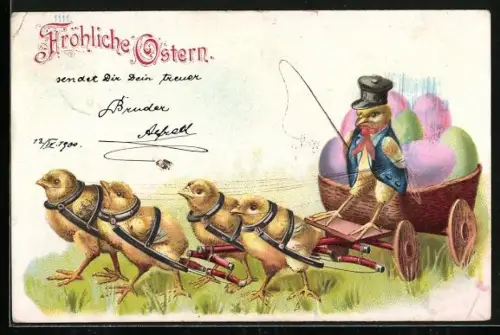 Fröhliche Ostern.
sendet Dir Dein treuer
Bruder
Alfred
13/IV. 1900.